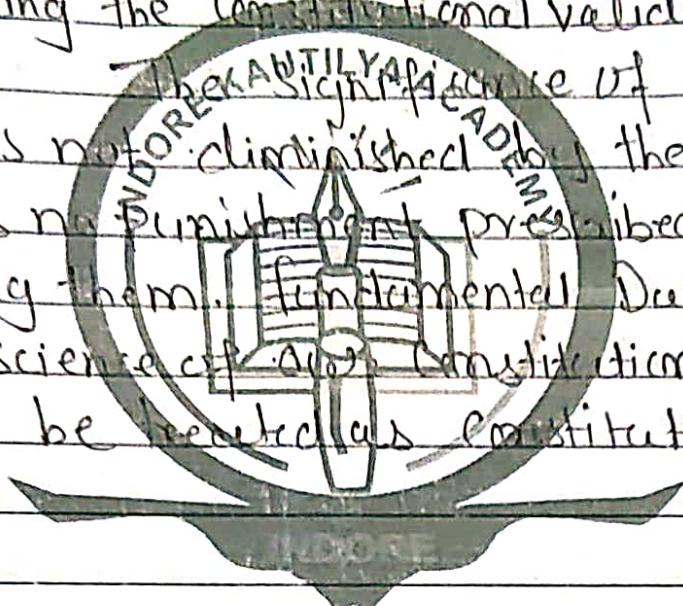 ing the Constitutional valid
The significance of
s not diminished by the
s no punishment prescribed
g them. fundamental Du
science of our Constitution
be treated as Constitut
INDORE KAUTILYA ACADEMY
INDORE